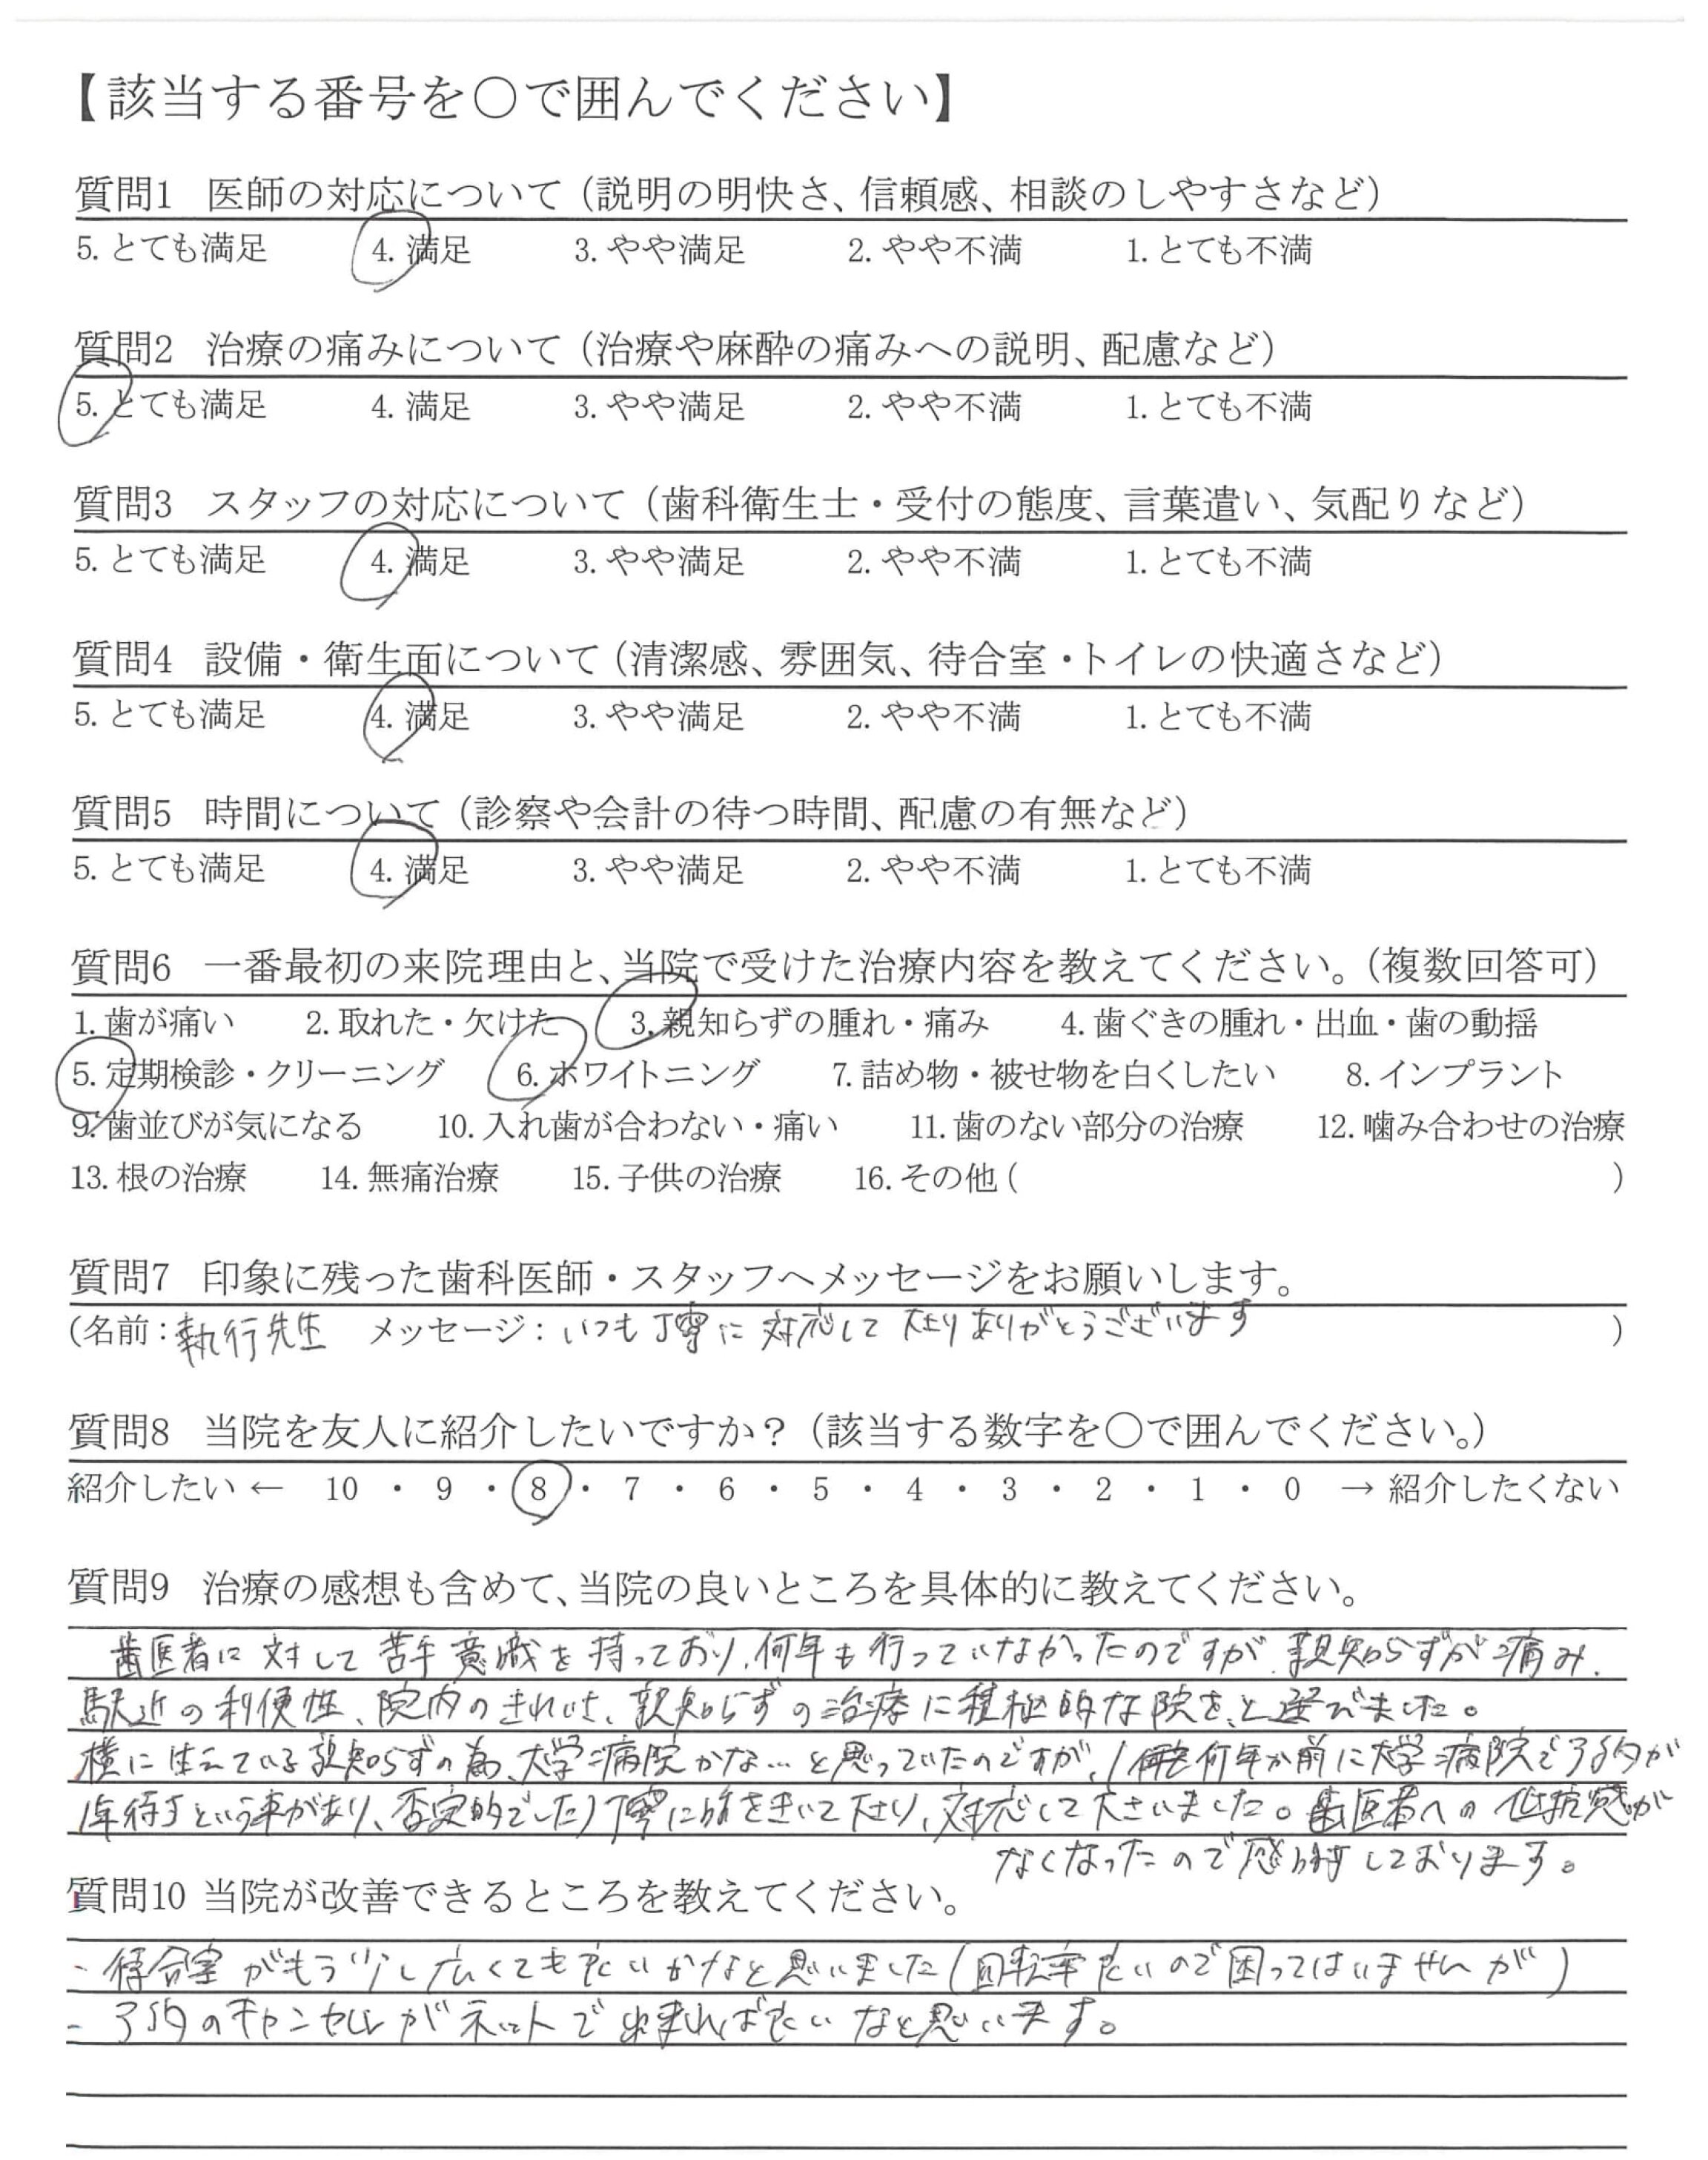 【該当する番号を○で囲んでください】
質問1 医師の対応について（説明の明快さ、信頼感、相談のしやすさなど）
5. とても満足 4. 満足 3. やや満足 2. やや不満 1. とても不満
質問2 治療の痛みについて（治療や麻酔の痛みへの説明、配慮など）
5. とても満足 4. 満足 3. やや満足 2. やや不満 1. とても不満
質問3 スタッフの対応について（歯科衛生士・受付の態度、言葉遣い、気配りなど）
5. とても満足 4. 満足 3. やや満足 2. やや不満 1. とても不満
質問4 設備・衛生面について（清潔感、雰囲気、待合室・トイレの快適さなど）
5. とても満足 4. 満足 3. やや満足 2. やや不満 1. とても不満
質問5 時間について（診察や会計の待つ時間、配慮の有無など）
5. とても満足 4. 満足 3. やや満足 2. やや不満 1. とても不満
質問6 一番最初の来院理由と、当院で受けた治療内容を教えてください。（複数回答可）
1. 歯が痛い 2. 取れた・欠けた 3. 親知らずの腫れ・痛み 4. 歯ぐきの腫れ・出血・歯の動揺
5. 定期検診・クリーニング 6. ホワイトニング 7. 詰め物・被せ物を白くしたい 8. インプラント
9. 歯並びが気になる 10. 入れ歯が合わない・痛い 11. 歯のない部分の治療 12. 噛み合わせの治療
13. 根の治療 14. 無痛治療 15. 子供の治療 16. その他（ ）
質問7 印象に残った歯科医師・スタッフへメッセージをお願いします。
（名前：執行先生 メッセージ：いつも丁寧に対応して下さりありがとうございます ）
質問8 当院を友人に紹介したいですか？（該当する数字を○で囲んでください。）
紹介したい ← 10 ・ 9 ・ 8 ・ 7 ・ 6 ・ 5 ・ 4 ・ 3 ・ 2 ・ 1 ・ 0 → 紹介したくない
質問9 治療の感想も含めて、当院の良いところを具体的に教えてください。
歯医者に対して苦手意識を持っており、何年も行っていなかったのですが、親知らずが痛み、
駅近の利便性、院内のきれいさ、親知らずの治療に積極的な院を、と選びました。
横に生えている親知らずの為、大学病院かな…と思っていたのですが、(何年か前に大学病院で予約が
1年待ちという事があり、否定的でした)丁寧に話をきいて下さり、対応して下さいました。歯医者への低抗感が
なくなったので感謝しております。
質問10 当院が改善できるところを教えてください。
- 待合室がもう少し広くても良いかなと思いました(回転率良いので困ってはいませんが)
- 予約のキャンセルがネットで出来れば良いなと思います。